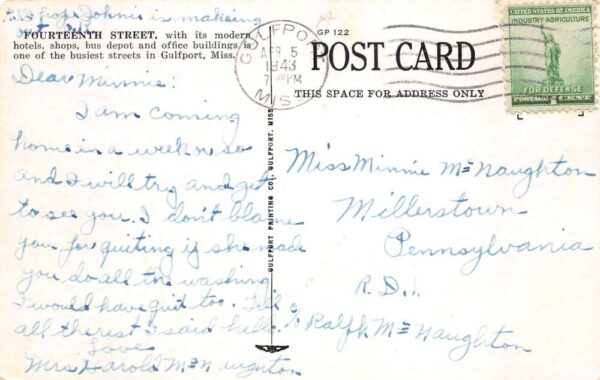 I hope Johnie is makeing
out
FOURTEENTH STREET, with its modern
hotels, shops, bus depot and office buildings is
one of the busiest streets in Gulfport, Miss.
Dear Minnie:
I am coming
home in a week or so
and I will try and get
to see you. I don't blame
you for quiting if she made
you do all the washing
I would have quit too. Tell
all the rest I said hello.
Love
Mrs Harold McNaughton
GULFPORT
APR 5
1943
PM
MISS
GP 122
POST CARD
THIS SPACE FOR ADDRESS ONLY
UNITED STATES OF AMERICA
INDUSTRY AGRICULTURE
FOR DEFENSE
POSTAGE 1 CENT
GULFPORT PRINTING CO., GULFPORT, MISS.
Miss Minnie McNaughton
Millerstown
Pennsylvania
R.D.1.
c/o Ralph McNaughton